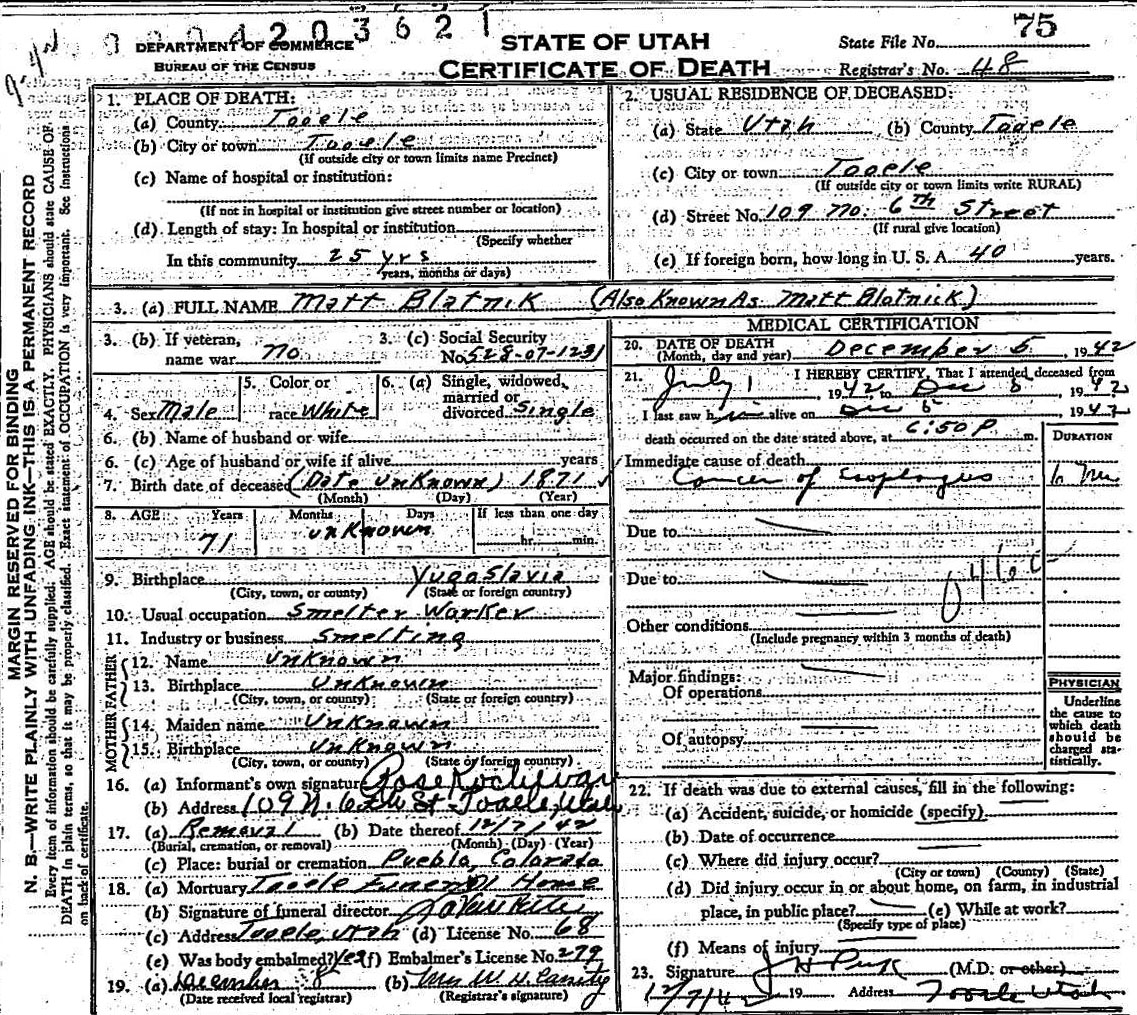 0004203621
DEPARTMENT OF COMMERCE
BUREAU OF THE CENSUS
STATE OF UTAH
CERTIFICATE OF DEATH
State File No. 75
Registrar's No. 48
MARGIN RESERVED FOR BINDING
N. B.—WRITE PLAINLY WITH UNFADING INK—THIS IS A PERMANENT RECORD
Every item of information should be carefully supplied. AGE should be stated EXACTLY. PHYSICIANS should state CAUSE OF
DEATH in plain terms, so that it may be properly classified. Exact statement of OCCUPATION is very important. See instructions
on back of certificate.
1. PLACE OF DEATH:
(a) County Tooele
(b) City or town Tooele
(If outside city or town limits name Precinct)
(c) Name of hospital or institution:
(If not in hospital or institution give street number or location)
(d) Length of stay: In hospital or institution
(Specify whether
In this community 25 yrs
years, months or days)
2. USUAL RESIDENCE OF DECEASED:
(a) State Utah (b) County Tooele
(c) City or town Tooele
(If outside city or town limits write RURAL)
(d) Street No. 109 No. 6th Street
(If rural give location)
(e) If foreign born, how long in U. S. A. 40 years.
3. (a) FULL NAME Matt Blatnik (Also Known As Matt Blatnick)
3. (b) If veteran, name war No
3. (c) Social Security No. 528-07-1231
4. Sex Male
5. Color or race White
6. (a) Single, widowed, married or divorced Single
6. (b) Name of husband or wife
6. (c) Age of husband or wife if alive years
7. Birth date of deceased (Date Unknown) 1871
(Month) (Day) (Year)
8. AGE Years Months Days If less than one day
71 unknown hr. min.
9. Birthplace Yugoslavia
(City, town, or county) (State or foreign country)
10. Usual occupation Smelter Worker
11. Industry or business Smelting
FATHER
12. Name Unknown
13. Birthplace Unknown
(City, town, or county) (State or foreign country)
MOTHER
14. Maiden name Unknown
15. Birthplace Unknown
(City, town, or county) (State or foreign country)
16. (a) Informant's own signature Rose Kochevar
(b) Address 109 N. 6th St Tooele, Utah
17. (a) Removal (b) Date thereof 12/7/42
(Burial, cremation, or removal) (Month) (Day) (Year)
(c) Place: burial or cremation Pueblo, Colorado
18. (a) Mortuary Tooele Funeral Home
(b) Signature of funeral director
(c) Address Tooele, Utah (d) License No. 68
(e) Was body embalmed? Yes (f) Embalmer's License No. 279
19. (a) December 8 (b) Mrs W. H.
(Date received local registrar) (Registrar's signature)
MEDICAL CERTIFICATION
20. DATE OF DEATH
(Month, day and year) December 5, 1942
21. I HEREBY CERTIFY, That I attended deceased from
July 1, 1942, to Dec 5, 1942
I last saw him alive on Dec 5, 1942
death occurred on the date stated above, at 6:50 P. m.
DURATION
Immediate cause of death
Cancer of Esophagus
Due to
Due to
Other conditions
(Include pregnancy within 3 months of death)
Major findings:
Of operations
Of autopsy
PHYSICIAN
Underline
the cause to
which death
should be
charged sta-
tistically.
22. If death was due to external causes, fill in the following:
(a) Accident, suicide, or homicide (specify)
(b) Date of occurrence
(c) Where did injury occur?
(City or town) (County) (State)
(d) Did injury occur in or about home, on farm, in industrial
place, in public place? (e) While at work?
(Specify type of place)
(f) Means of injury
23. Signature J H Peck (M.D. or other)
12/7/42 19 Address Tooele Utah